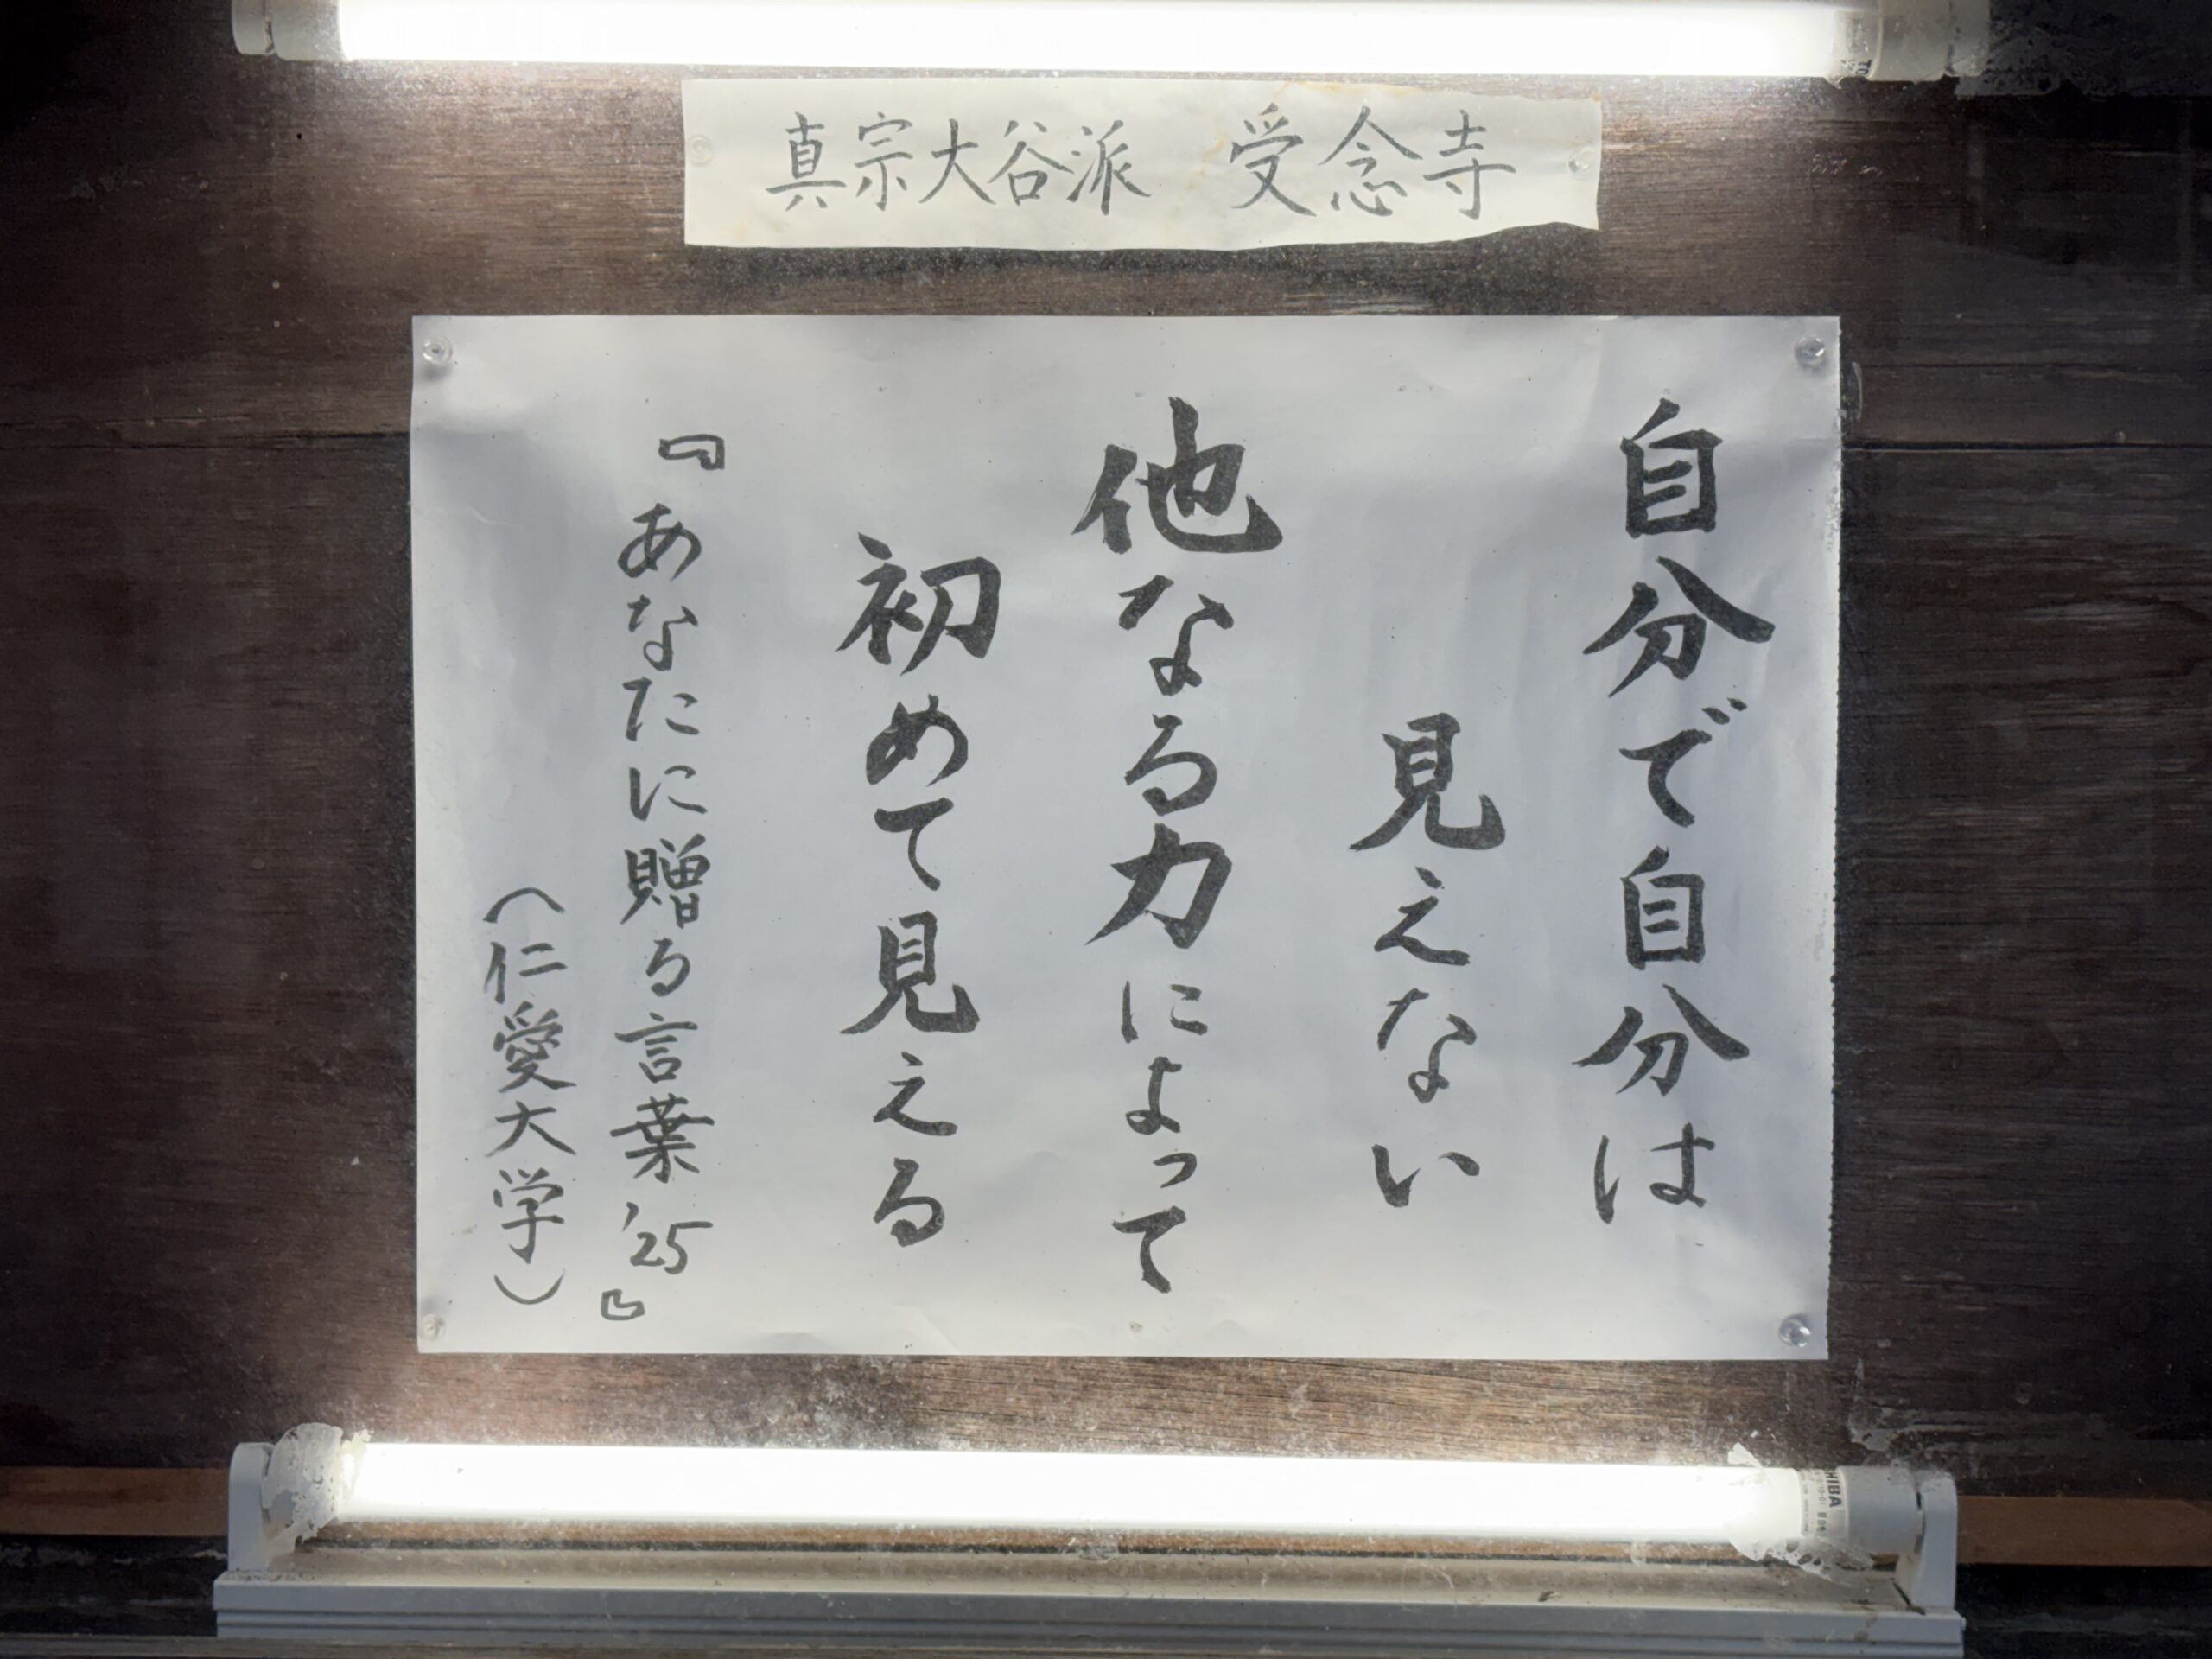 真宗大谷派　受念寺
自分で自分は
見えない
他なる力によって
初めて見える
『あなたに贈る言葉'25』
（仁愛大学）